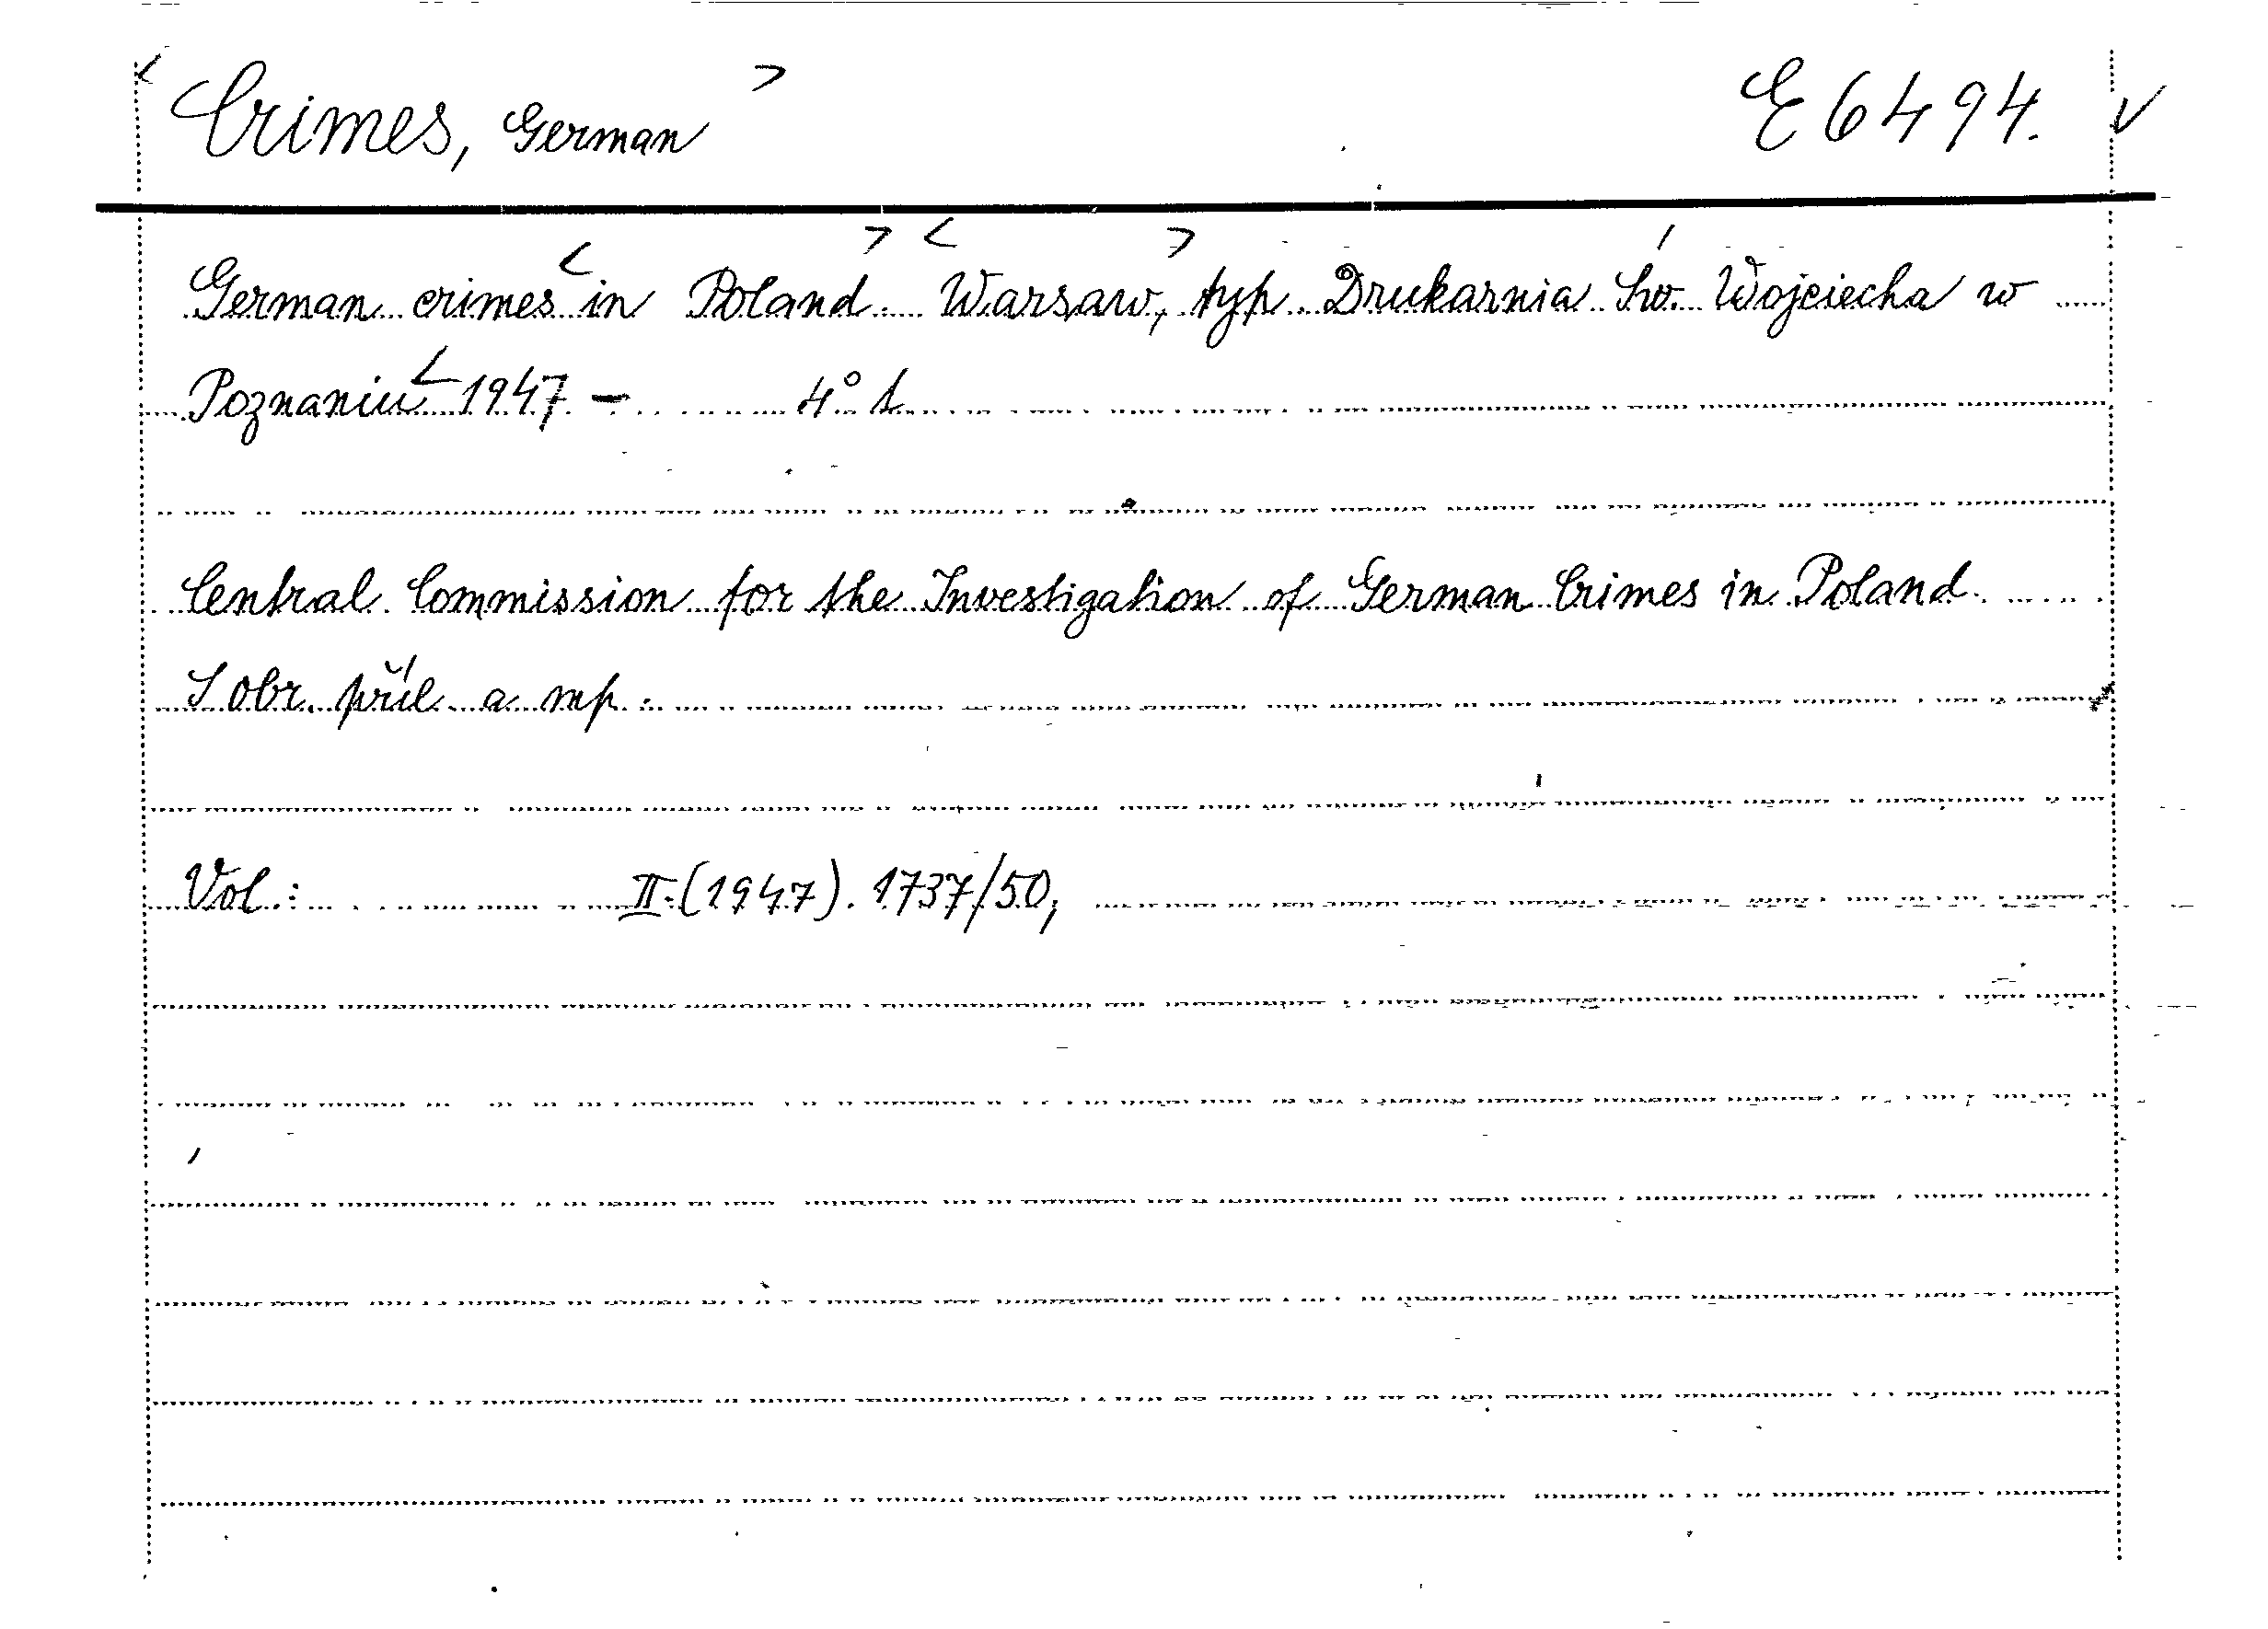 < Crimes, German > E 6494. v
German crimes < in Poland. > < Warsaw, > typ. Drukarnia Św. Wojciecha w
Poznaniu < 1947 - 4°
Central Commission for the Investigation of German Crimes in Poland.
S obr. příl. a mp.
Vol.: II.(1947). 1737/50,